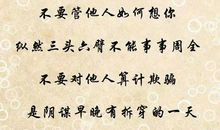 不要管他人如何想你
纵然三头六臂不能事事周全
不要对他人算计欺骗
是阴谋早晚有拆穿的一天